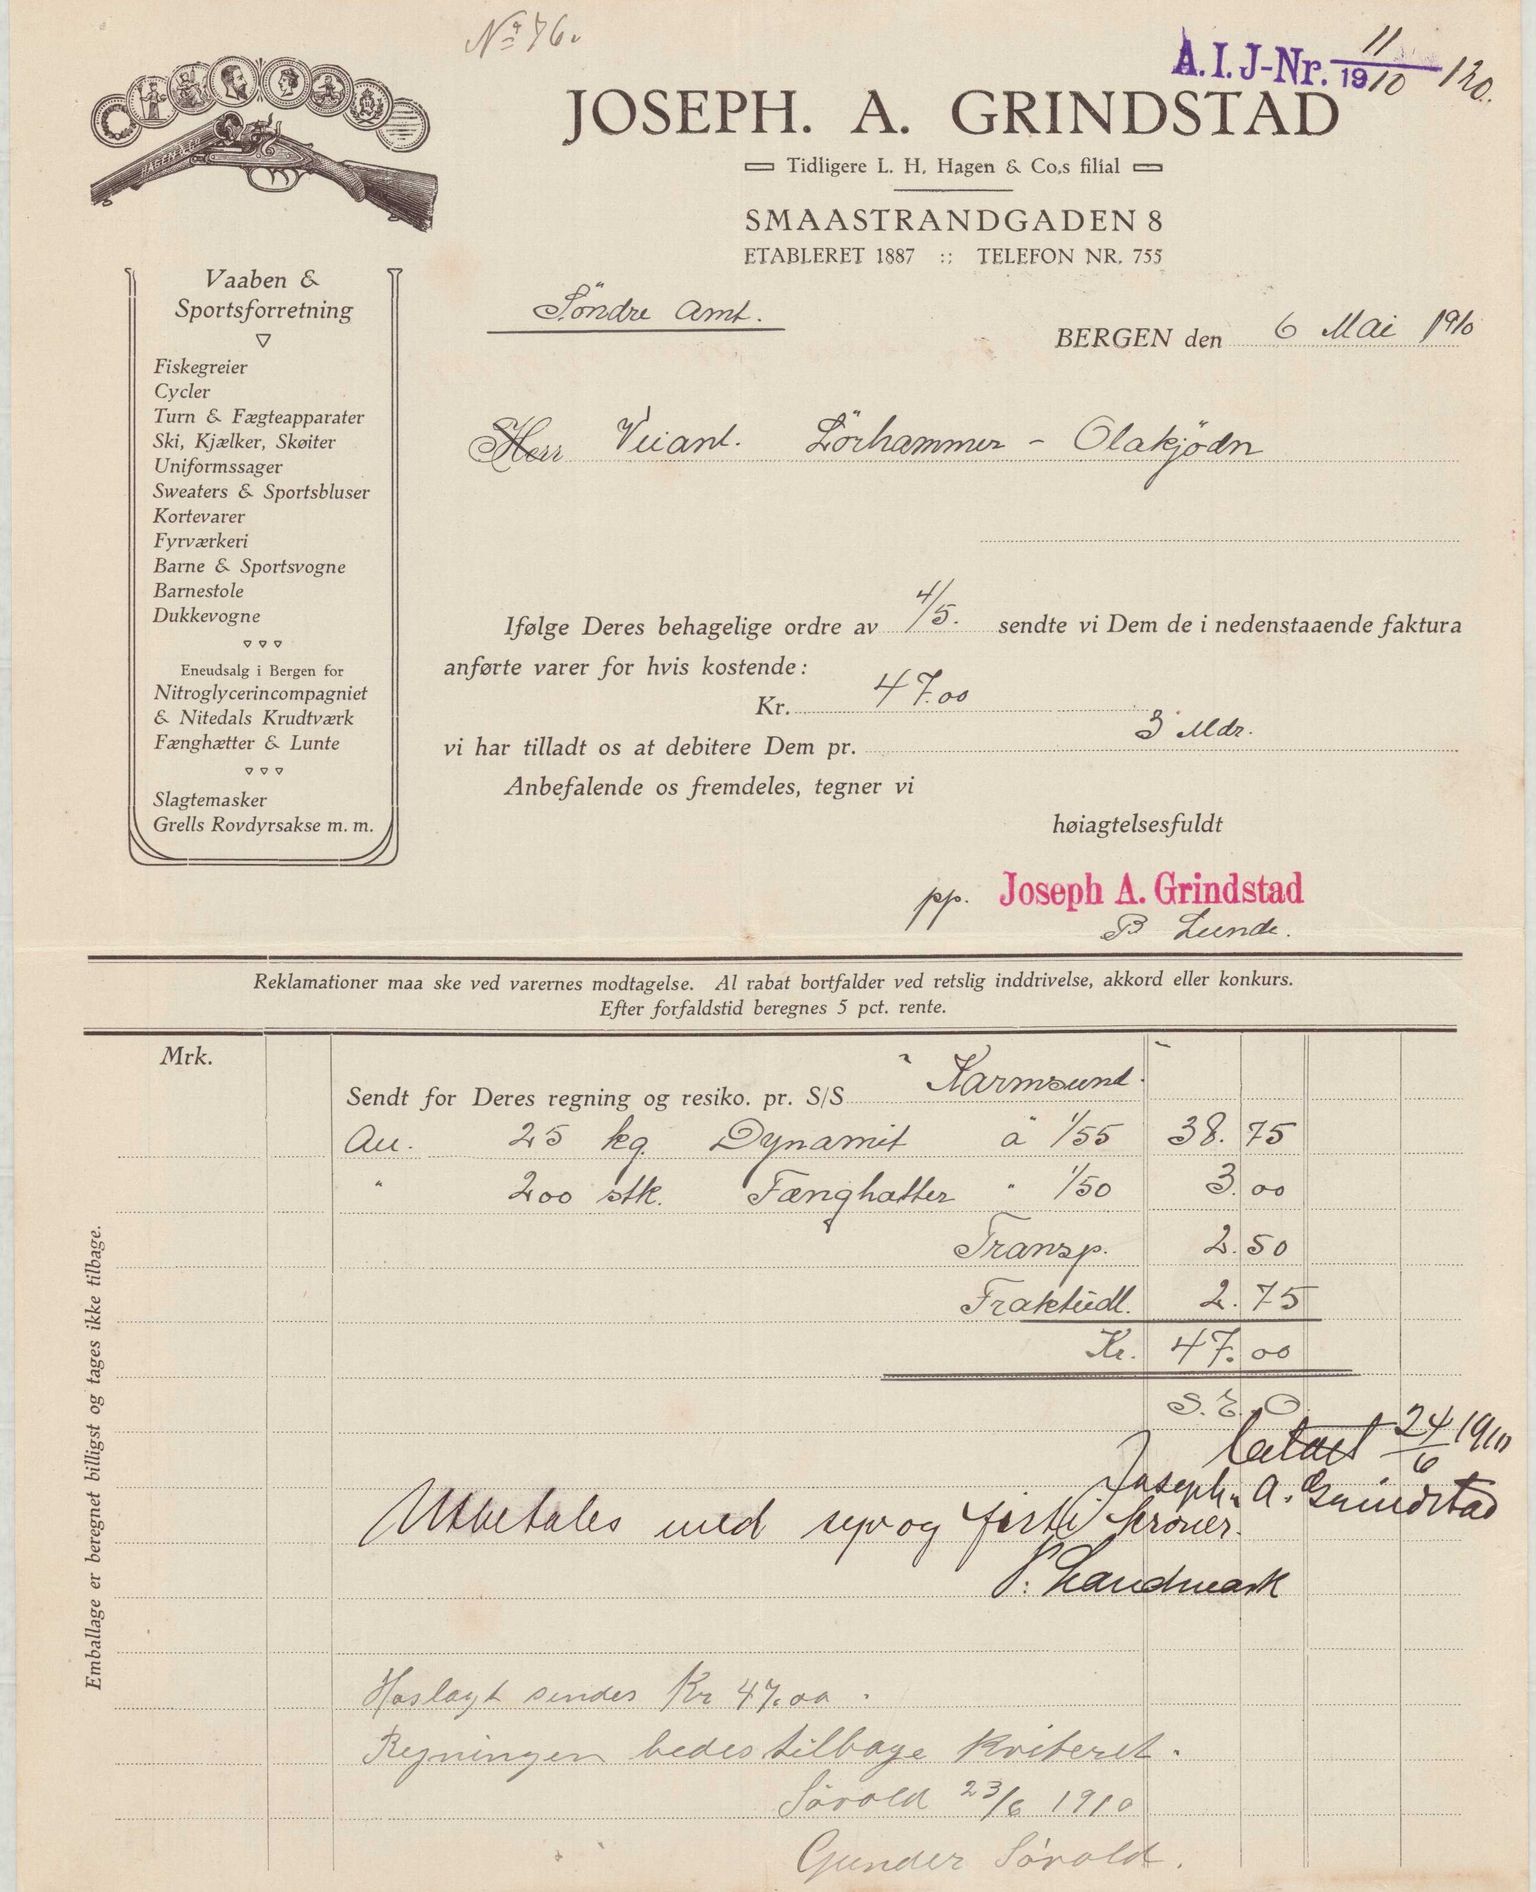 No 76.
A.I.J-Nr. 11/1910 120.
HAGEN & Co
JOSEPH. A. GRINDSTAD
Tidligere L. H. Hagen & Co.s filial
SMAASTRANDGADEN 8
ETABLERET 1887 :: TELEFON NR. 755
Vaaben &
Sportsforretning
Fiskegreier
Cycler
Turn & Fægteapparater
Ski, Kjælker, Skøiter
Uniformssager
Sweaters & Sportsbluser
Kortevarer
Fyrværkeri
Barne & Sportsvogne
Barnestole
Dukkevogne
Eneudsalg i Bergen for
Nitroglycerincompagniet
& Nitedals Krudtværk
Fænghætter & Lunte
Slagtemasker
Grells Rovdyrsakse m. m.
Söndre Amt.
BERGEN den 6 Mai 1910
Herr Veiant. Lörhammer - Olakjödn
Ifølge Deres behagelige ordre av 4/5. sendte vi Dem de i nedenstaaende faktura
anførte varer for hvis kostende:
Kr. 47.00
vi har tilladt os at debitere Dem pr. 3 Mdr.
Anbefalende os fremdeles, tegner vi
høiagtelsesfuldt
pp. Joseph A. Grindstad
B Lunde.
Reklamationer maa ske ved varernes modtagelse. Al rabat bortfalder ved retslig inddrivelse, akkord eller konkurs.
Efter forfaldstid beregnes 5 pct. rente.
Mrk.
Sendt for Deres regning og resiko. pr. S/S "Karmsund"
An. 25 kg. Dynamit a 1/55 38.75
" 200 stk. Fænghatter " 1/50 3.00
Transp. 2.50
Fraktudl. 2.75
Kr. 47.00
S. E. O.
Betalt 24/6 1910
Joseph. A. Grindstad
Utbetales med syv og förti kroner.
P. Landmark
Haslagt sendes Kr 47.00.
Regningen bedes tilbage kviteret.
Sövold 23/6 1910
Gunder Sövold.
Emballage er beregnet billigst og tages ikke tilbage.